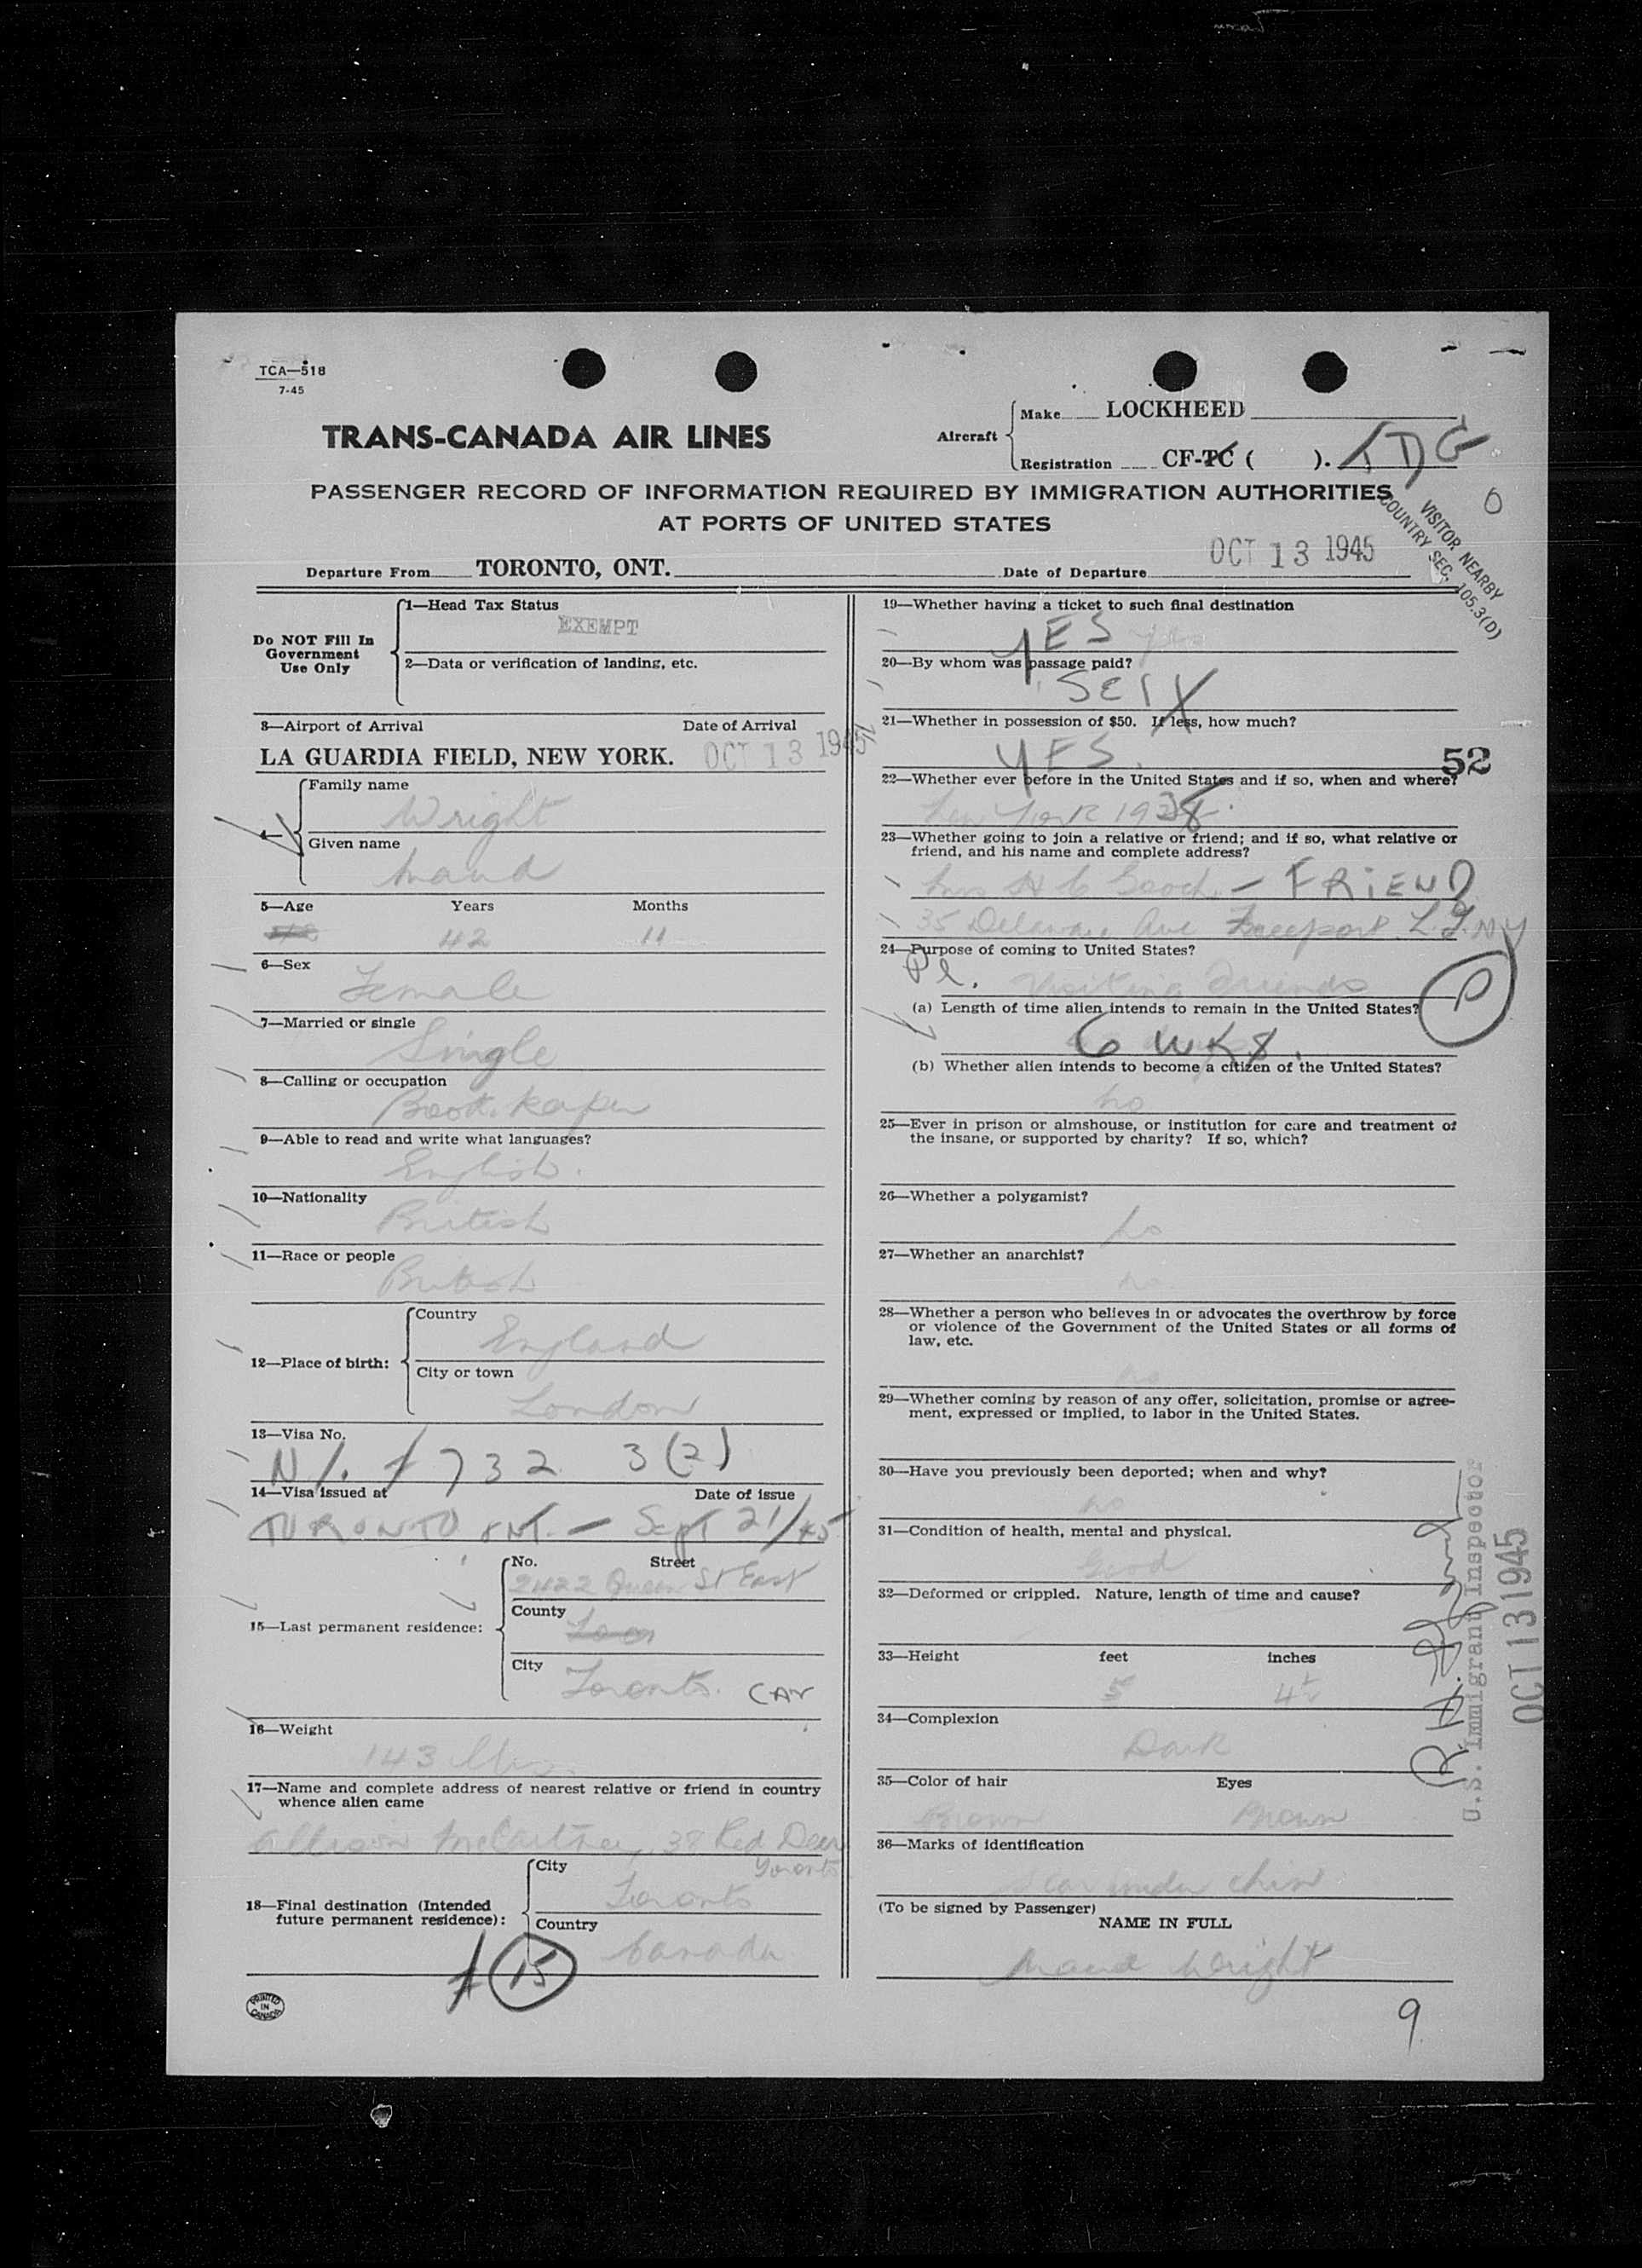 TCA—518
7-45
TRANS-CANADA AIR LINES
Aircraft
Make LOCKHEED
Registration CF-TC ( ). TDG
PASSENGER RECORD OF INFORMATION REQUIRED BY IMMIGRATION AUTHORITIES
AT PORTS OF UNITED STATES
VISITOR NEARBY
COUNTRY SEC. 105.3(D)
Departure From TORONTO, ONT. Date of Departure OCT 13 1945
Do NOT Fill In
Government
Use Only
1—Head Tax Status
EXEMPT
2—Data or verification of landing, etc.
3—Airport of Arrival Date of Arrival
LA GUARDIA FIELD, NEW YORK. OCT 13 1945
4—
Family name
Wright
Given name
Maud
5—Age Years Months
42 11
6—Sex
Female
7—Married or single
Single
8—Calling or occupation
Book keeper
9—Able to read and write what languages?
English.
10—Nationality
British
11—Race or people
British
12—Place of birth:
Country
England
City or town
London
13—Visa No.
732 3(2)
14—Visa issued at Date of issue
TORONTO ONT. — Sept 21/45
15—Last permanent residence:
No. Street
2422 Queen St East
County
City
Toronto. CAN
16—Weight
143 lbs
17—Name and complete address of nearest relative or friend in country
whence alien came
McCartney, 38 Red Deer
Toronto
18—Final destination (Intended
future permanent residence):
City
Toronto
Country
Canada
15
PRINTED
IN
CANADA
19—Whether having a ticket to such final destination
YES yes
20—By whom was passage paid?
SELF
21—Whether in possession of $50. If less, how much?
YES
52
22—Whether ever before in the United States and if so, when and where?
New York 1938.
23—Whether going to join a relative or friend; and if so, what relative or
friend, and his name and complete address?
Mrs H C Gooch — FRIEND
35 Delaware Ave Freeport L.I. N.Y
24—Purpose of coming to United States?
Pl. Visiting Friends
P
(a) Length of time alien intends to remain in the United States?
6 WKS.
(b) Whether alien intends to become a citizen of the United States?
no
25—Ever in prison or almshouse, or institution for care and treatment of
the insane, or supported by charity? If so, which?
26—Whether a polygamist?
no
27—Whether an anarchist?
no
28—Whether a person who believes in or advocates the overthrow by force
or violence of the Government of the United States or all forms of
law, etc.
no
29—Whether coming by reason of any offer, solicitation, promise or agree-
ment, expressed or implied, to labor in the United States.
30—Have you previously been deported; when and why?
no
31—Condition of health, mental and physical.
Good
32—Deformed or crippled. Nature, length of time and cause?
33—Height feet inches
5 4½
34—Complexion
Dark
35—Color of hair Eyes
Brown Brown
36—Marks of identification
Scar under chin
(To be signed by Passenger)
NAME IN FULL
Maud Wright
U.S. Immigrant Inspector
OCT 13 1945
9